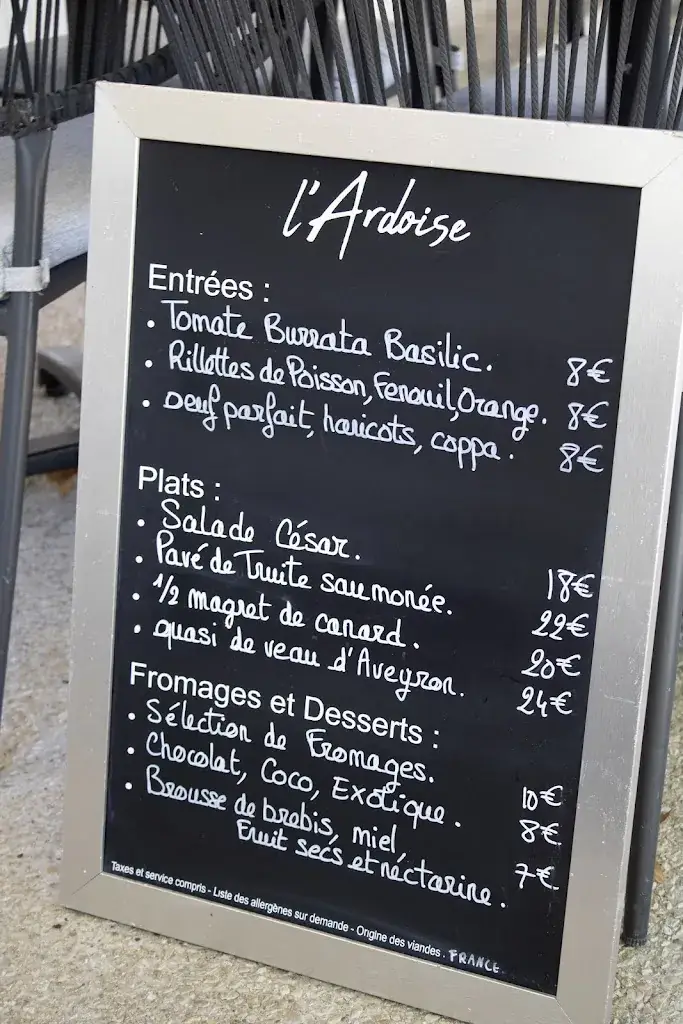 l'Ardoise
Entrées :
• Tomate Burrata Basilic. 8€
• Rillettes de Poisson, Fenouil, Orange. 8€
• Oeuf parfait, haricots, coppa. 8€
Plats :
• Salade César. 18€
• Pavé de Truite saumonée. 22€
• 1/2 magret de canard. 20€
• quasi de veau d'Aveyron. 24€
Fromages et Desserts :
• Sélection de Fromages. 10€
• Chocolat, Coco, Exotique. 8€
• Brousse de brebis, miel
Fruit secs et nectarine. 7€
Taxes et service compris - Liste des allergènes sur demande - Origine des viandes . FRANCE